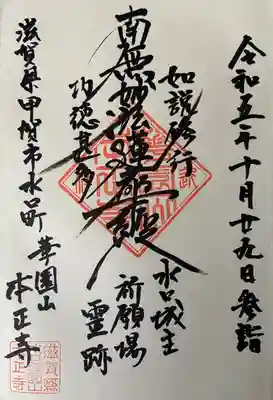 令和五年十月廿九日参詣
如説修行
水口城主
祈願場
霊跡
南無妙法蓮華経
功徳甚多
滋賀県甲賀市水口町
華園山
本正寺